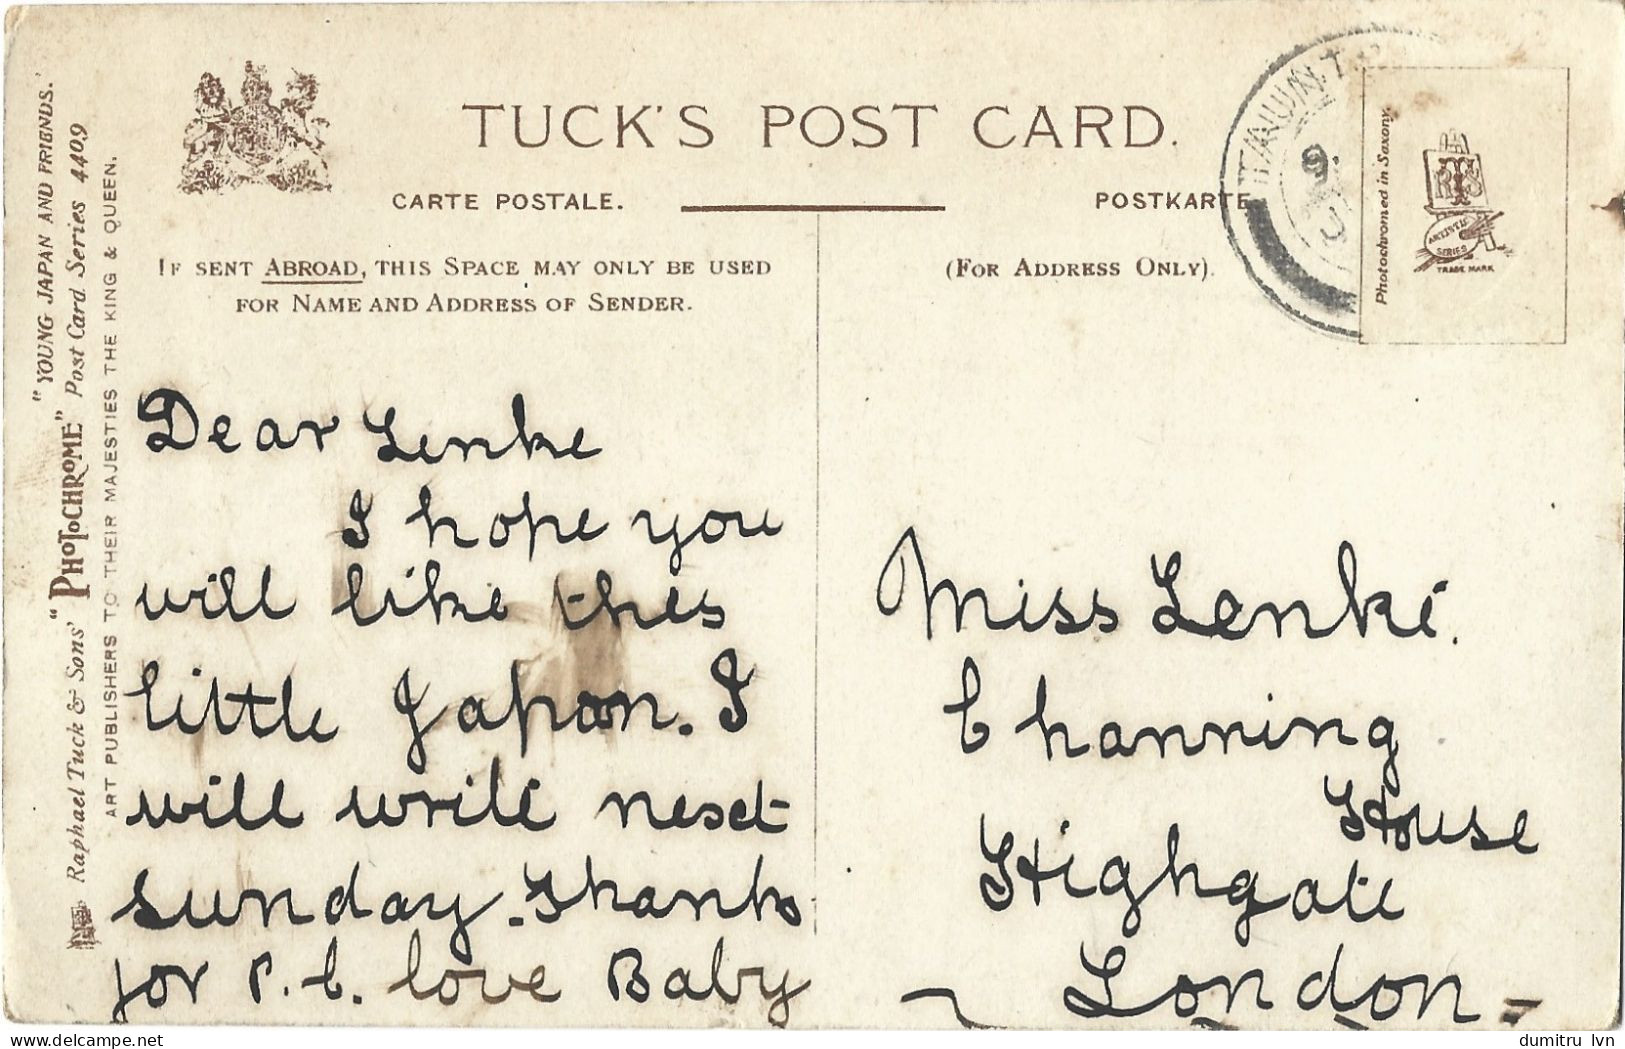 TUCK'S POST CARD.
CARTE POSTALE.
POSTKARTE
IF SENT ABROAD, THIS SPACE MAY ONLY BE USED
FOR NAME AND ADDRESS OF SENDER.
(FOR ADDRESS ONLY).
TAUNT
9
Photochromed in Saxony.
RTS
ARTISTIC
SERIES
TRADE MARK
"YOUNG JAPAN AND FRIENDS."
Raphael Tuck & Sons' "PHOTOCHROME" Post Card Series 4409
ART PUBLISHERS TO THEIR MAJESTIES THE KING & QUEEN.
Dear Lenke
I hope you
will like thes
little Japan. I
will write nesct
sunday. Thanks
for P.C. love Baby
Miss Lenke.
Channing
House
Highgate
London
dumitru lvn